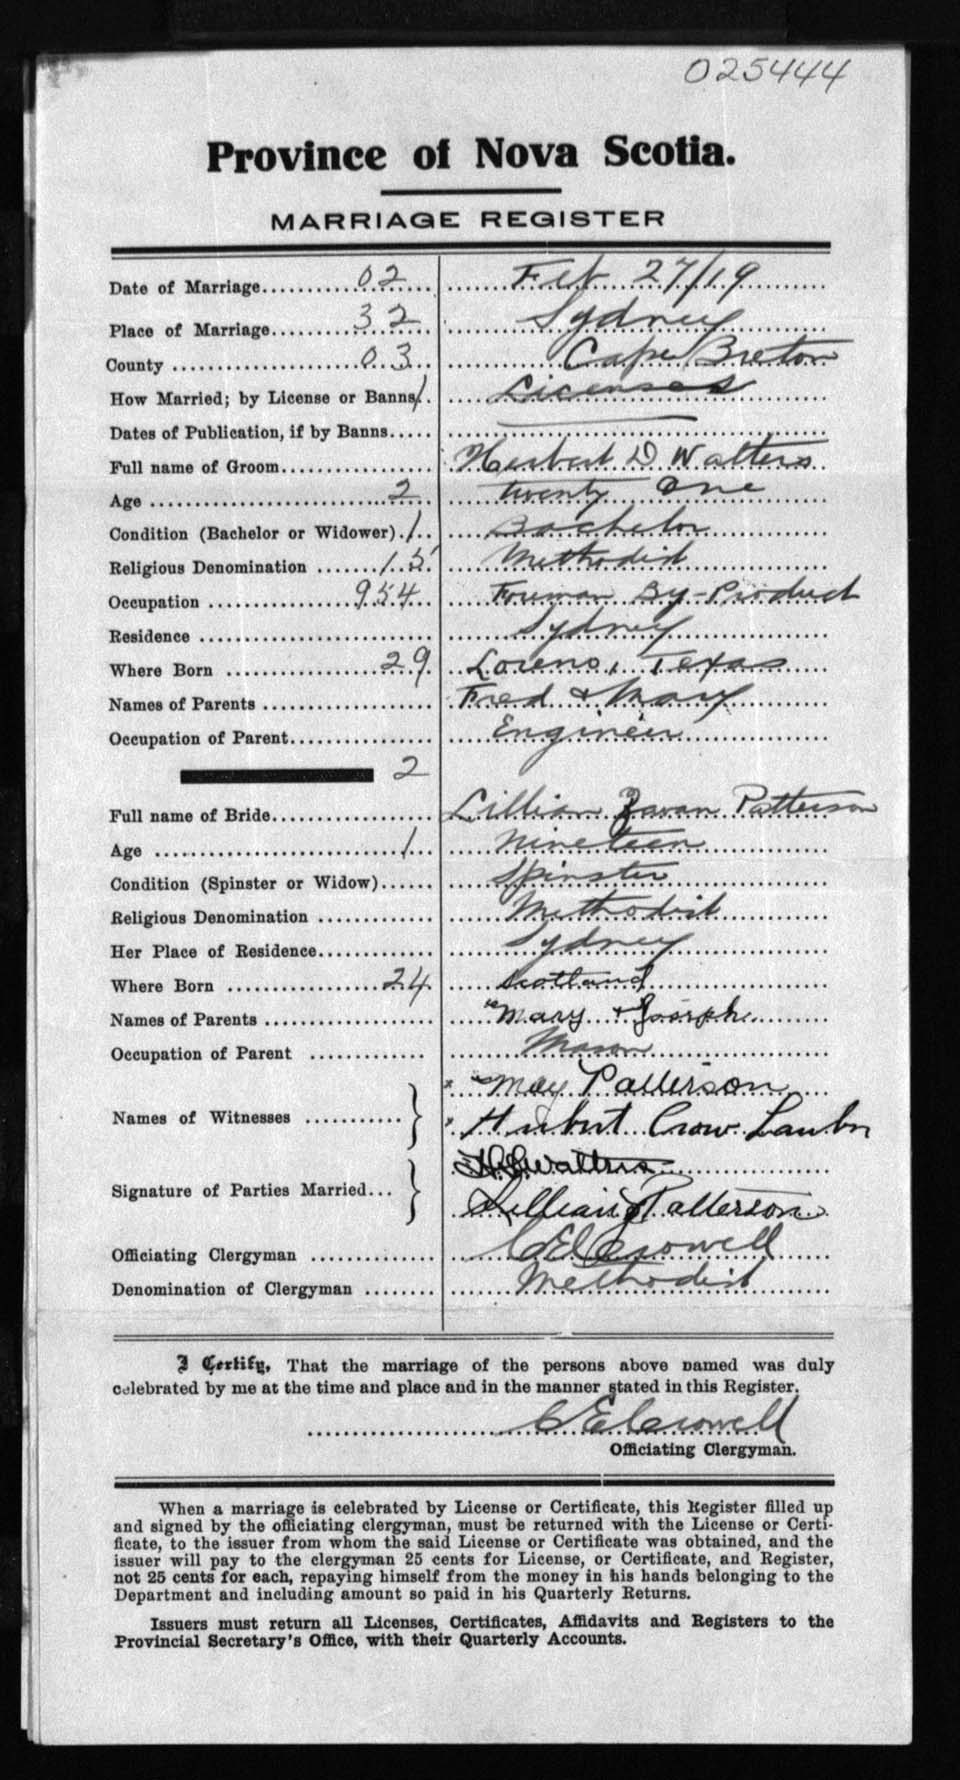 025444
Province of Nova Scotia.
MARRIAGE REGISTER
Date of Marriage 02 Feb 27/19
Place of Marriage 32 Sydney
County 03 Cape Breton
How Married; by License or Banns 1 Licenses
Dates of Publication, if by Banns
Full name of Groom Herbert D Walters
Age 2 twenty One
Condition (Bachelor or Widower) 1 Bachelor
Religious Denomination 15 Methodist
Occupation 954 Foreman By-Product
Residence Sydney
Where Born 29 Loreno, Texas
Names of Parents Fred & Mary
Occupation of Parent Engineer
2
Full name of Bride Lillian Patterson
Age 1 Nineteen
Condition (Spinster or Widow) Spinster
Religious Denomination Methodist
Her Place of Residence Sydney
Where Born 24 Scotland
Names of Parents Mary & Joseph
Occupation of Parent Mason
x May Patterson
Names of Witnesses
x Hubert Crow
Walters
Signature of Parties Married
Lillian J Patterson
Officiating Clergyman C E Crowell
Denomination of Clergyman Methodist
I Certify, That the marriage of the persons above named was duly
celebrated by me at the time and place and in the manner stated in this Register.
C E Crowell
Officiating Clergyman.
When a marriage is celebrated by License or Certificate, this Register filled up
and signed by the officiating clergyman, must be returned with the License or Certi-
ficate, to the issuer from whom the said License or Certificate was obtained, and the
issuer will pay to the clergyman 25 cents for License, or Certificate, and Register,
not 25 cents for each, repaying himself from the money in his hands belonging to the
Department and including amount so paid in his Quarterly Returns.
Issuers must return all Licenses, Certificates, Affidavits and Registers to the
Provincial Secretary's Office, with their Quarterly Accounts.